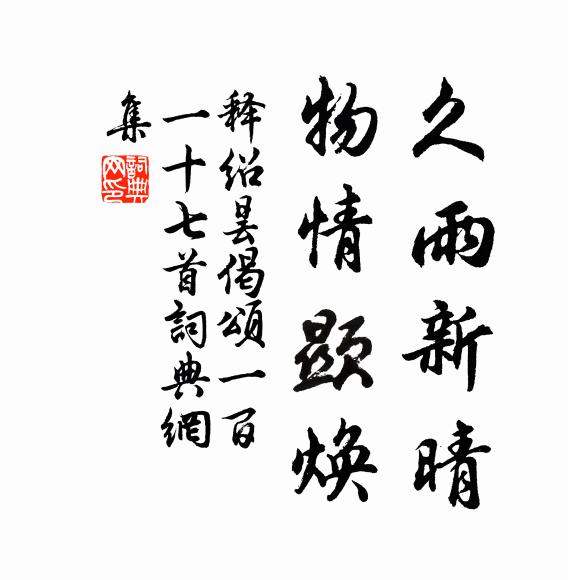 久雨新晴
物情顕煥
释绍昙偈頌一百
一十七首詞典網
集
詞典网印